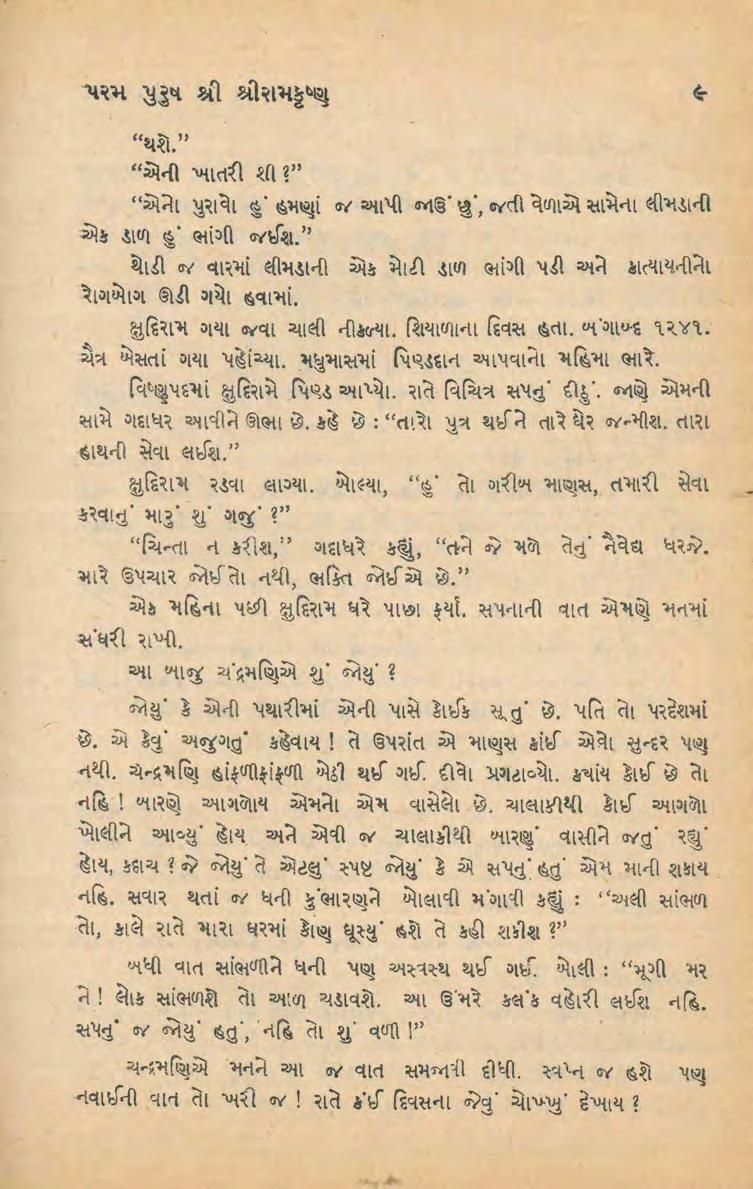 પરમ પુરુષ શ્રી શ્રીરામકૃષ્ણ ૯
“થશે.”
“એની ખાતરી શી ?”
“એનો પુરાવો હું હમણાં જ આપી જાઉં છું, જતી વેળાએ સામેના લીમડાની
એક ડાળ હું ભાંગી જઈશ.”
થોડી જ વારમાં લીમડાની એક મોટી ડાળ ભાંગી પડી અને કાત્યાયનીનો
રોગબોગ ઊડી ગયો હવામાં.
ક્ષુદિરામ ગયા જવા ચાલી નીકળ્યા. શિયાળાના દિવસ હતા. બંગાબ્દ ૧૨૪૧.
ચૈત્ર બેસતાં ગયા પહોંચ્યા. મધુમાસમાં પિણ્ડદાન આપવાનો મહિમા ભારે.
વિષ્ણુપદમાં ક્ષુદિરામે પિણ્ડ આપ્યો. રાતે વિચિત્ર સપનું દીઠું. જાણે એમની
સામે ગદાધર આવીને ઊભા છે. કહે છે : “તારો પુત્ર થઈને તારે ઘેર જન્મીશ. તારા
હાથની સેવા લઈશ.”
ક્ષુદિરામ રડવા લાગ્યા. બોલ્યા, “હું તો ગરીબ માણસ, તમારી સેવા
કરવાનું મારું શું ગજું ?”
“ચિન્તા ન કરીશ,” ગદાધરે કહ્યું, “તને જે મળે તેનું નૈવેદ્ય ધરજે.
મારે ઉપચાર જોઈતો નથી, ભક્તિ જોઈએ છે.”
એક મહિના પછી ક્ષુદિરામ ઘરે પાછા ફર્યા. સપનાની વાત એમણે મનમાં
સંઘરી રાખી.
આ બાજુ ચંદ્રમણિએ શું જોયું ?
જોયું કે એની પથારીમાં એની પાસે કોઈક સૂતું છે. પતિ તો પરદેશમાં
છે. એ કેવું અજુગતું કહેવાય ! તે ઉપરાંત એ માણસ કાંઈ એવો સુન્દર પણ
નથી. ચન્દ્રમણિ હાંફળીફાંફળી બેઠી થઈ ગઈ. દીવો પ્રગટાવ્યો. ક્યાંય કોઈ છે તો
નહિ ! બારણે આગળોય એમનો એમ વાસેલો છે. ચાલાકીથી કોઈ આગળો
ખોલીને આવ્યું હોય અને એવી જ ચાલાકીથી બારણું વાસીને જતું રહ્યું
હોય, કદાચ ? જે જોયું તે એટલું સ્પષ્ટ જોયું કે એ સપનું હતું એમ માની શકાય
નહિ. સવાર થતાં જ ધની કુંભારણને બોલાવી મંગાવી કહ્યું : “અલી સાંભળ
તો, કાલે રાતે મારા ઘરમાં કોણ ઘૂસ્યું હશે તે કહી શકીશ ?”
બધી વાત સાંભળીને ધની પણ અસ્વસ્થ થઈ ગઈ. બોલી : “મૂગી મર
ને ! લોક સાંભળશે તો આળ ચડાવશે. આ ઉંમરે કલંક વહોરી લઈશ નહિ.
સપનું જ જોયું હતું, નહિ તો શું વળી !”
ચન્દ્રમણિએ મનને આ જ વાત સમજાવી દીધી. સ્વપ્ન જ હશે પણ
નવાઈની વાત તો ખરી જ ! રાતે કંઈ દિવસના જેવું ચોખ્ખું દેખાય ?